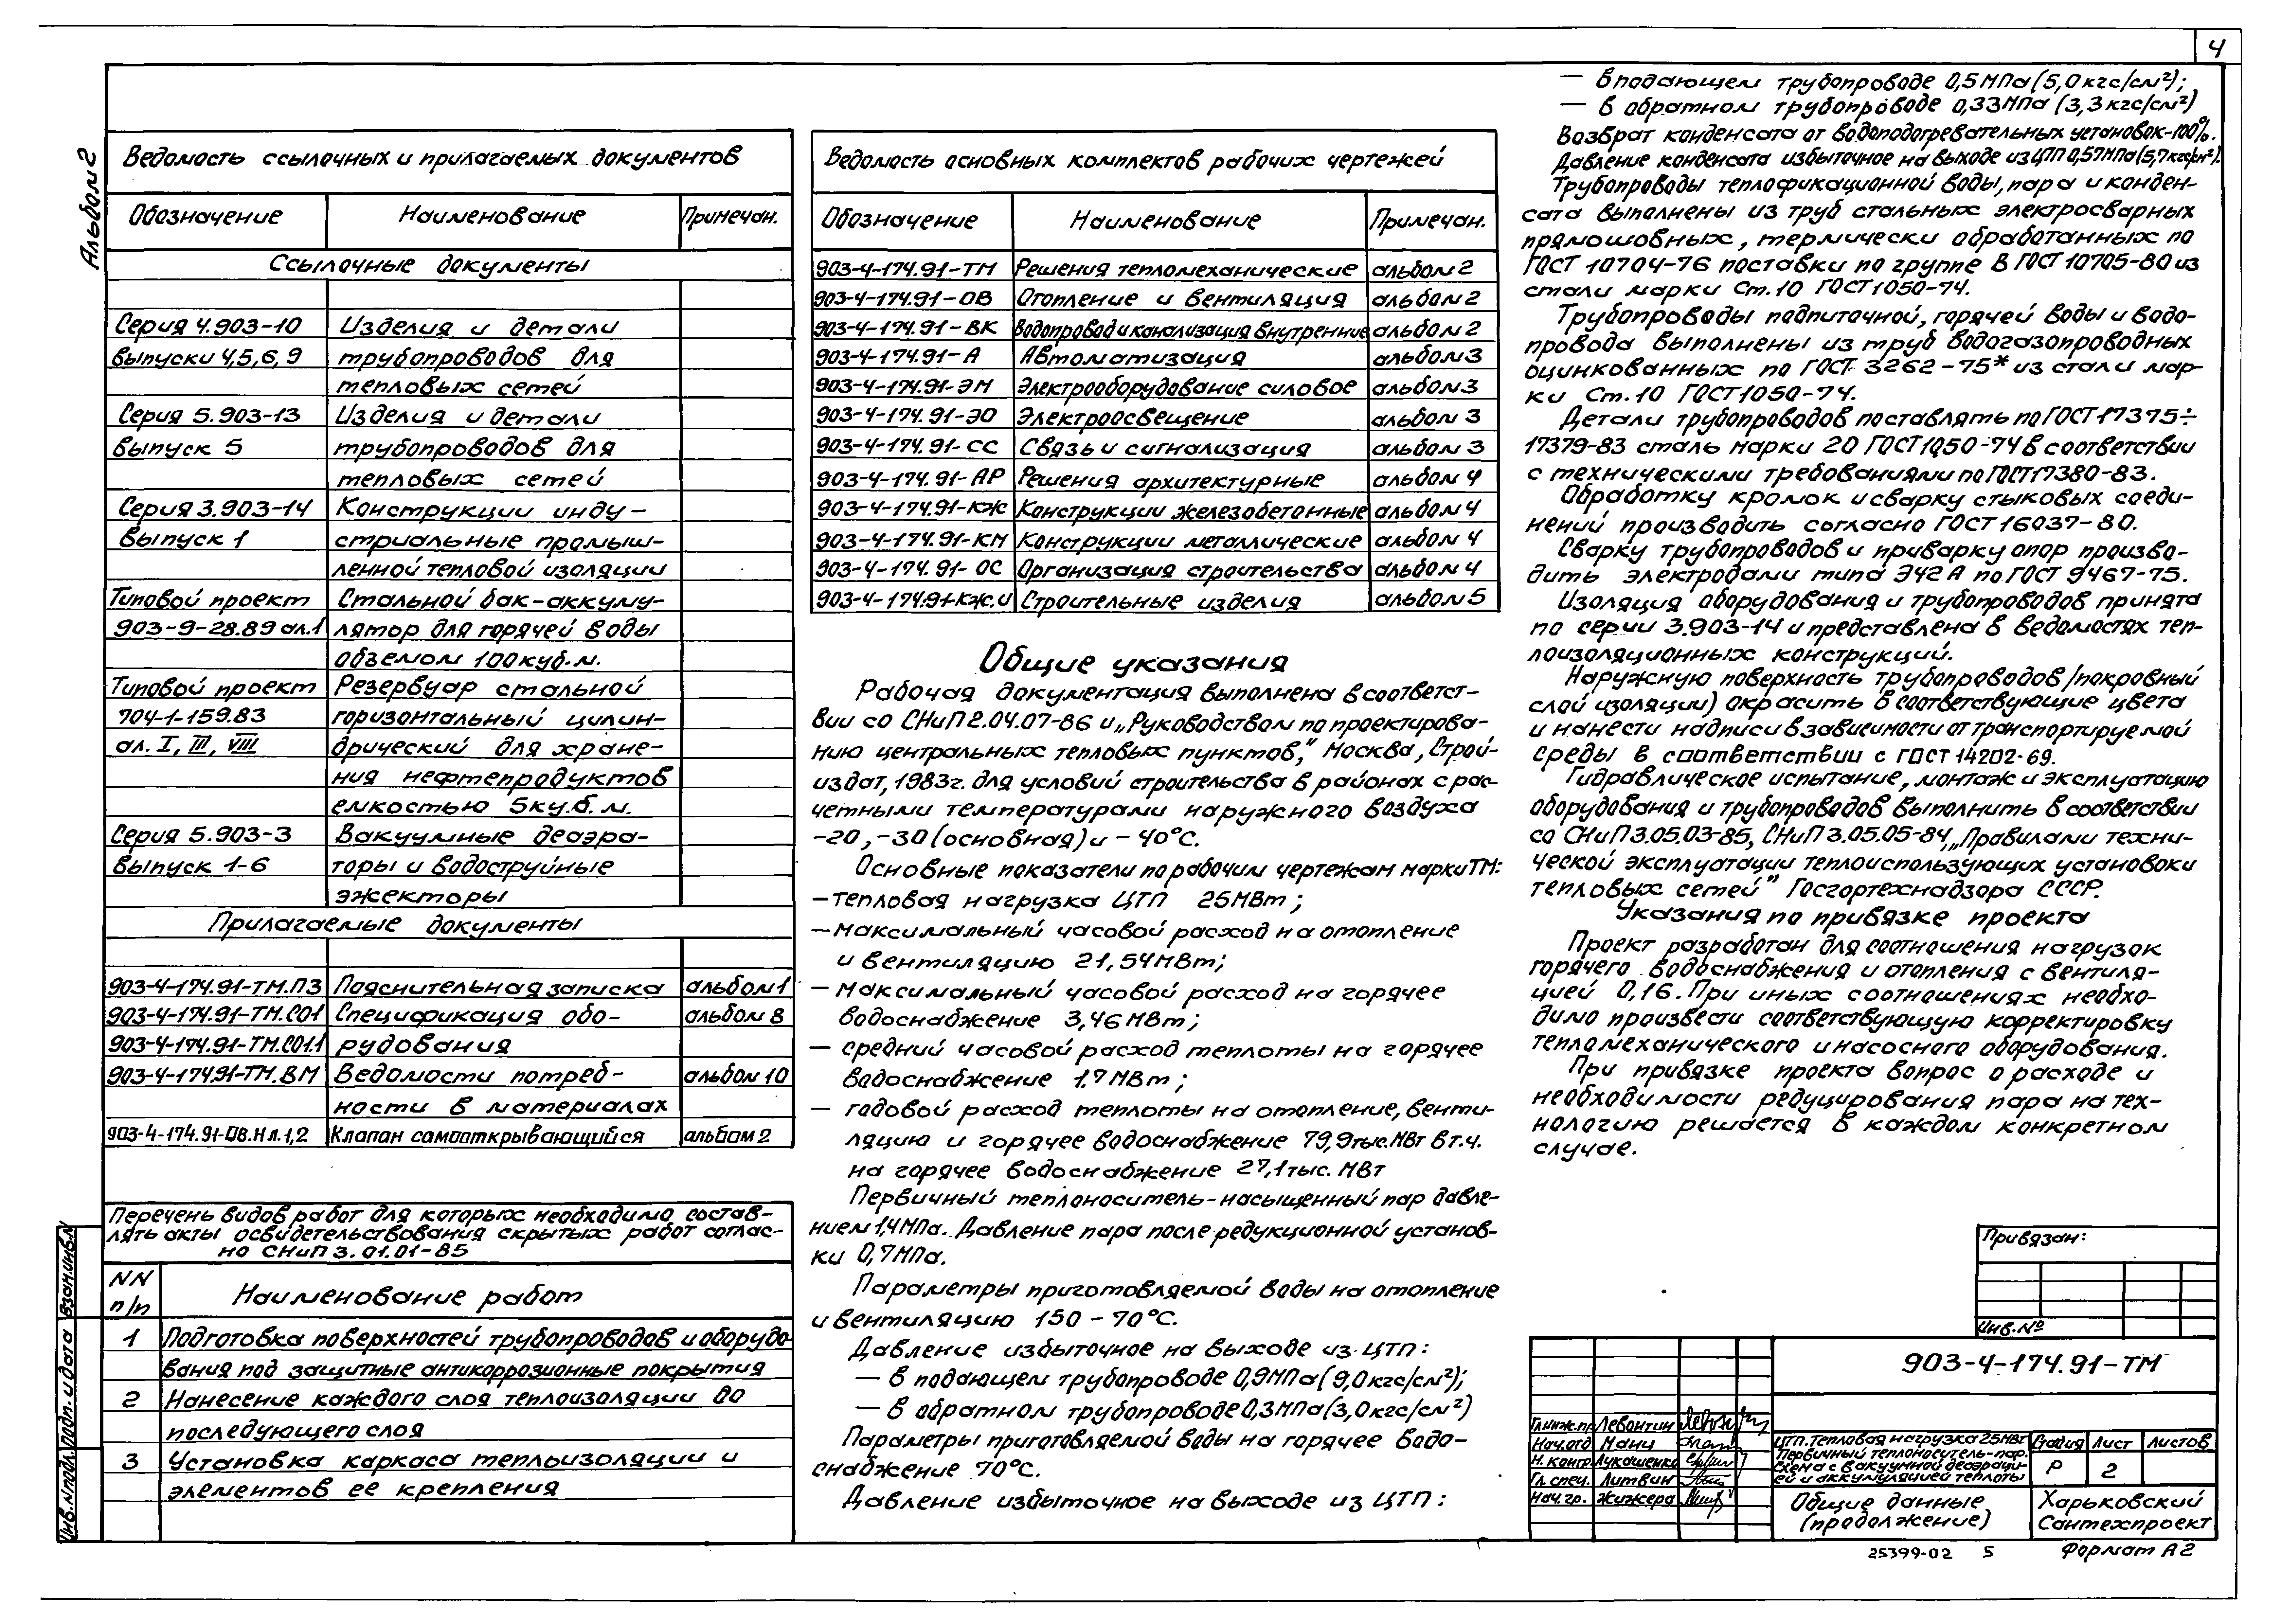 4
Альбом 2
Ведомость ссылочных и прилагаемых документов
Обозначение Наименование Примечан.
Ссылочные документы
Серия 4.903-10 Изделия и детали
выпуски 4,5,6,9 трубопроводов для
тепловых сетей
Серия 5.903-13 Изделия и детали
выпуск 5 трубопроводов для
тепловых сетей
Серия 3.903-14 Конструкции инду-
выпуск 1 стриальные промыш-
ленной тепловой изоляции
Типовой проект Стальной бак-аккуму-
903-9-28.89 ал.1 лятор для горячей воды
объемом 100 куб.м.
Типовой проект Резервуар стальной
704-1-159.83 горизонтальный цилин-
ал. I, III, VIII дрический для хране-
ния нефтепродуктов
емкостью 5ку.б.м.
Серия 5.903-3 Вакуумные деаэра-
выпуск 1-6 торы и водоструйные
эжекторы
Прилагаемые документы
903-4-174.91-ТМ.ПЗ Пояснительная записка альбом 1
903-4-174.91-ТМ.СО1 Спецификация обо- альбом 8
903-4-174.91-ТМ.СО1.1 рудования
903-4-174.91-ТМ.ВМ Ведомости потреб- альбом 10
ности в материалах
903-4-174.91-ОВ.Н л.1,2 Клапан самооткрывающийся альбом 2
Перечень видов работ для которых необходимо состав-
лять акты освидетельствования скрытых работ соглас-
но СНиП 3.01.01-85
NN
п/п Наименование работ
1 Подготовка поверхностей трубопроводов и оборудо-
вания под защитные антикоррозионные покрытия
2 Нанесение каждого слоя теплоизоляции до
последующего слоя
3 Установка каркаса теплоизоляции и
элементов ее крепления
Взам.инв.N
Подп. и дата
Инв.Nподл.
Ведомость основных комплектов рабочих чертежей
Обозначение Наименование Примечан.
903-4-174.91-ТМ Решения тепломеханические альбом 2
903-4-174.91-ОВ Отопление и вентиляция альбом 2
903-4-174.91-ВК Водопровод и канализация внутренние альбом 2
903-4-174.91-А Автоматизация альбом 3
903-4-174.91-ЭМ Электрооборудование силовое альбом 3
903-4-174.91-ЭО Электроосвещение альбом 3
903-4-174.91-СС Связь и сигнализация альбом 3
903-4-174.91-АР Решения архитектурные альбом 4
903-4-174.91-КЖ Конструкции железобетонные альбом 4
903-4-174.91-КМ Конструкции металлические альбом 4
903-4-174.91-ОС Организация строительства альбом 4
903-4-174.91-КЖ.И Строительные изделия альбом 5
Общие указания
Рабочая документация выполнена в соответст-
вии со СНиП 2.04.07-86 и „Руководством по проектирова-
нию центральных тепловых пунктов," Москва, Строй-
издат, 1983г. для условий строительства в районах с рас-
четными температурами наружного воздуха
-20, -30 (основная) и -40°С.
Основные показатели по рабочим чертежам марки ТМ:
- тепловая нагрузка ЦТП 25МВт;
- максимальный часовой расход на отопление
и вентиляцию 21,54МВт;
- максимальный часовой расход на горячее
водоснабжение 3,46 МВт;
- средний часовой расход теплоты на горячее
водоснабжение 1,7 МВт;
- годовой расход теплоты на отопление, венти-
ляцию и горячее водоснабжение 79,9тыс.МВт в т.ч.
на горячее водоснабжение 27,1 тыс. МВт
Первичный теплоноситель-насыщенный пар давле-
нием 1,4МПа. Давление пара после редукционной установ-
ки 0,7МПа.
Параметры приготовляемой воды на отопление
и вентиляцию 150 - 70°С.
Давление избыточное на выходе из ЦТП:
- в подающем трубопроводе 0,9МПа (9,0кгс/см²);
- в обратном трубопроводе 0,3МПа (3,0кгс/см²)
Параметры приготовляемой воды на горячее водо-
снабжение 70°С.
Давление избыточное на выходе из ЦТП:
- в подающем трубопроводе 0,5МПа (5,0кгс/см²);
- в обратном трубопроводе 0,33МПа (3,3кгс/см²)
Возврат конденсата от водоподогревательных установок-100%.
Давление конденсата избыточное на выходе из ЦТП 0,57МПа (5,7кгс/см²).
Трубопроводы теплофикационной воды, пара и конден-
сата выполнены из труб стальных электросварных
прямошовных, термически обработанных по
ГОСТ 10704-76 поставки по группе В ГОСТ 10705-80 из
стали марки Ст.10 ГОСТ1050-74.
Трубопроводы подпиточной, горячей воды и водо-
провода выполнены из труб водогазопроводных
оцинкованных по ГОСТ 3262-75* из стали мар-
ки Ст.10 ГОСТ1050-74.
Детали трубопроводов поставлять по ГОСТ 17375÷
17379-83 сталь марки 20 ГОСТ1050-74 в соответствии
с техническими требованиями по ГОСТ17380-83.
Обработку кромок и сварку стыковых соеди-
нений производить согласно ГОСТ 16037-80.
Сварку трубопроводов и приварку опор произво-
дить электродами типа Э42А по ГОСТ 9467-75.
Изоляция оборудования и трубопроводов принята
по серии 3.903-14 и представлена в ведомостях теп-
лоизоляционных конструкций.
Наружную поверхность трубопроводов /покровный
слой изоляции) окрасить в соответствующие цвета
и нанести надписи в зависимости от транспортируемой
среды в соответствии с ГОСТ 14202-69.
Гидравлическое испытание, монтаж и эксплуатацию
оборудования и трубопроводов выполнить в соответствии
со СНиП 3.05.03-85, СНиП 3.05.05-84, „Правилами техни-
ческой эксплуатации теплоиспользующих установок и
тепловых сетей" Госгортехнадзора СССР.
Указания по привязке проекта
Проект разработан для соотношения нагрузок
горячего водоснабжения и отопления с вентиля-
цией 0,16. При иных соотношениях необхо-
димо произвести соответствующую корректировку
тепломеханического и насосного оборудования.
При привязке проекта вопрос о расходе и
необходимости редуцирования пара на тех-
нологию решается в каждом конкретном
случае.
Привязан:
Инв.Nº
903-4-174.91-ТМ
Гл.инж.пр Левонтин
Нач.отд Манц
Н. контр Лукашенко
Гл. спец. Литвин
Нач. гр. Жижера
ЦТП. Тепловая нагрузка 25МВт
Первичный теплоноситель-пар.
Схема с вакуумной деаэраци-
ей и аккумуляцией теплоты
Стадия Лист Листов
Р 2
Общие данные
(продолжение)
Харьковский
Сантехпроект
25399-02 5 Формат А2